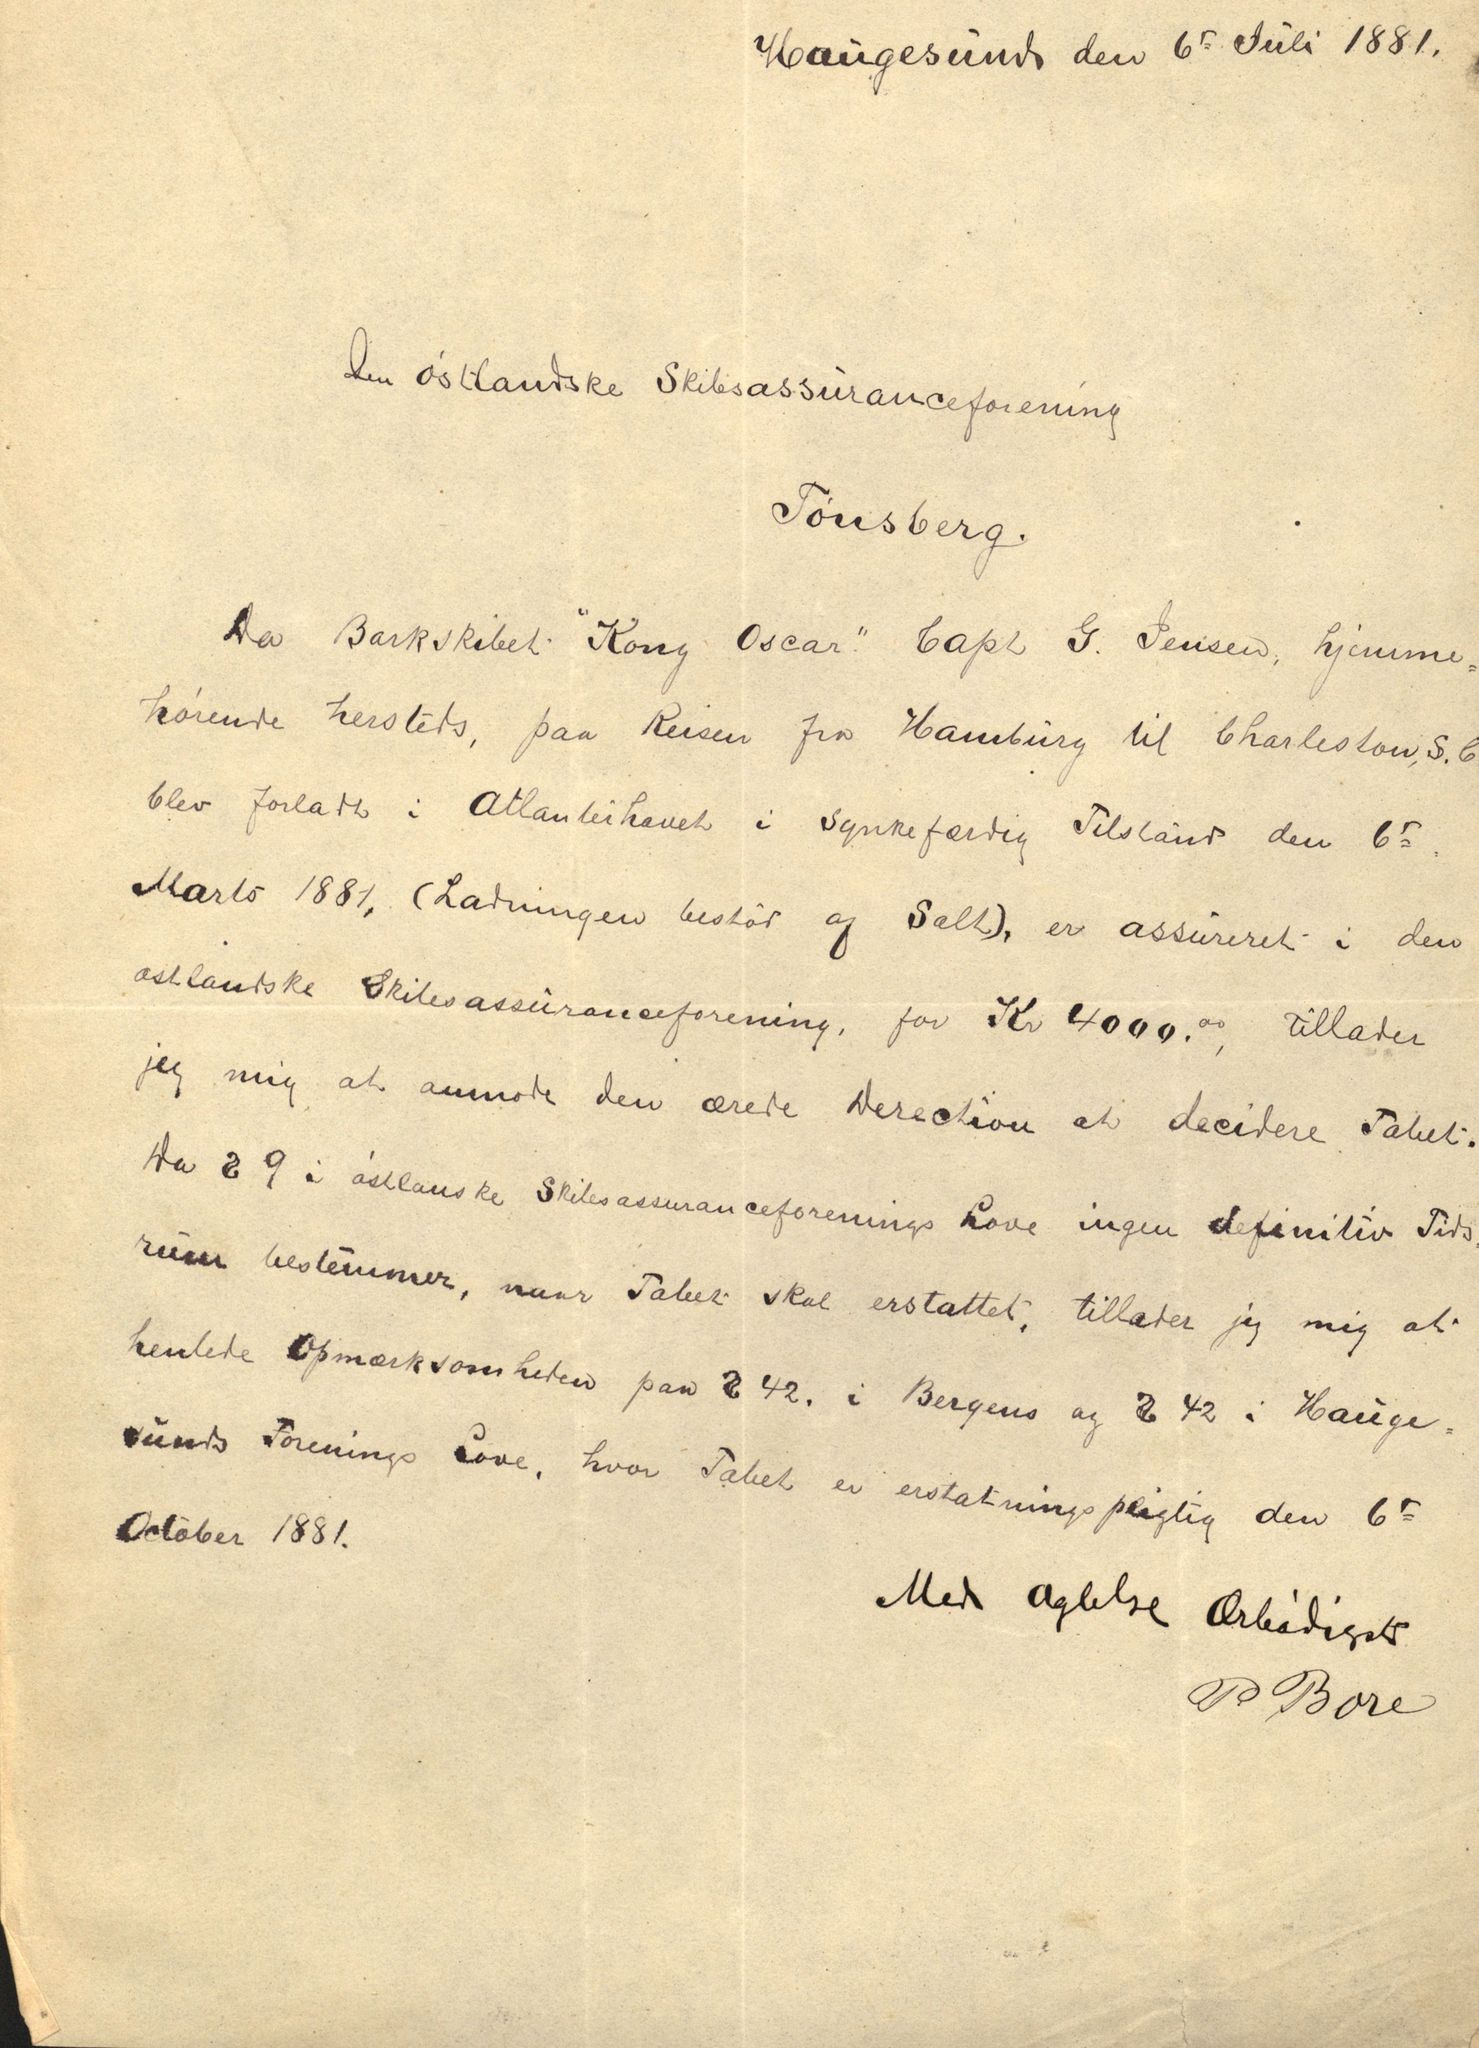 Haugesund den 6te Juli 1881.
Den östlandske Skibsassuranceforening
Tönsberg.
Da Barkskibet "Kong Oscar" Capt G. Jensen, hjemme=
hörende hersteds, paa Reisen fra Hamburg til Charleston, S. C
blev forladt i Atlanterhavet i synkefærdig Tilstand den 6te
Marts 1881, (Ladningen bestod af Salt), er assureret i den
östlandske Skibsassuranceforening, for Kr 4000.00, tillader
jeg mig at anmode den ærede Derection at decidere Tabet.
Da § 9 i östlanske Skibsassuranceforenings Love ingen definitiv Tids=
rum bestemmer, naar Tabet skal erstattet, tillader jeg mig at
henlede Opmærksomheden paa § 42. i Bergens og § 42 i Hauge=
sunds Forenings Love, hvor Tabet er erstatningspligtig den 6te
October 1881.
Med Agtelse Ærbödigst
P Bore